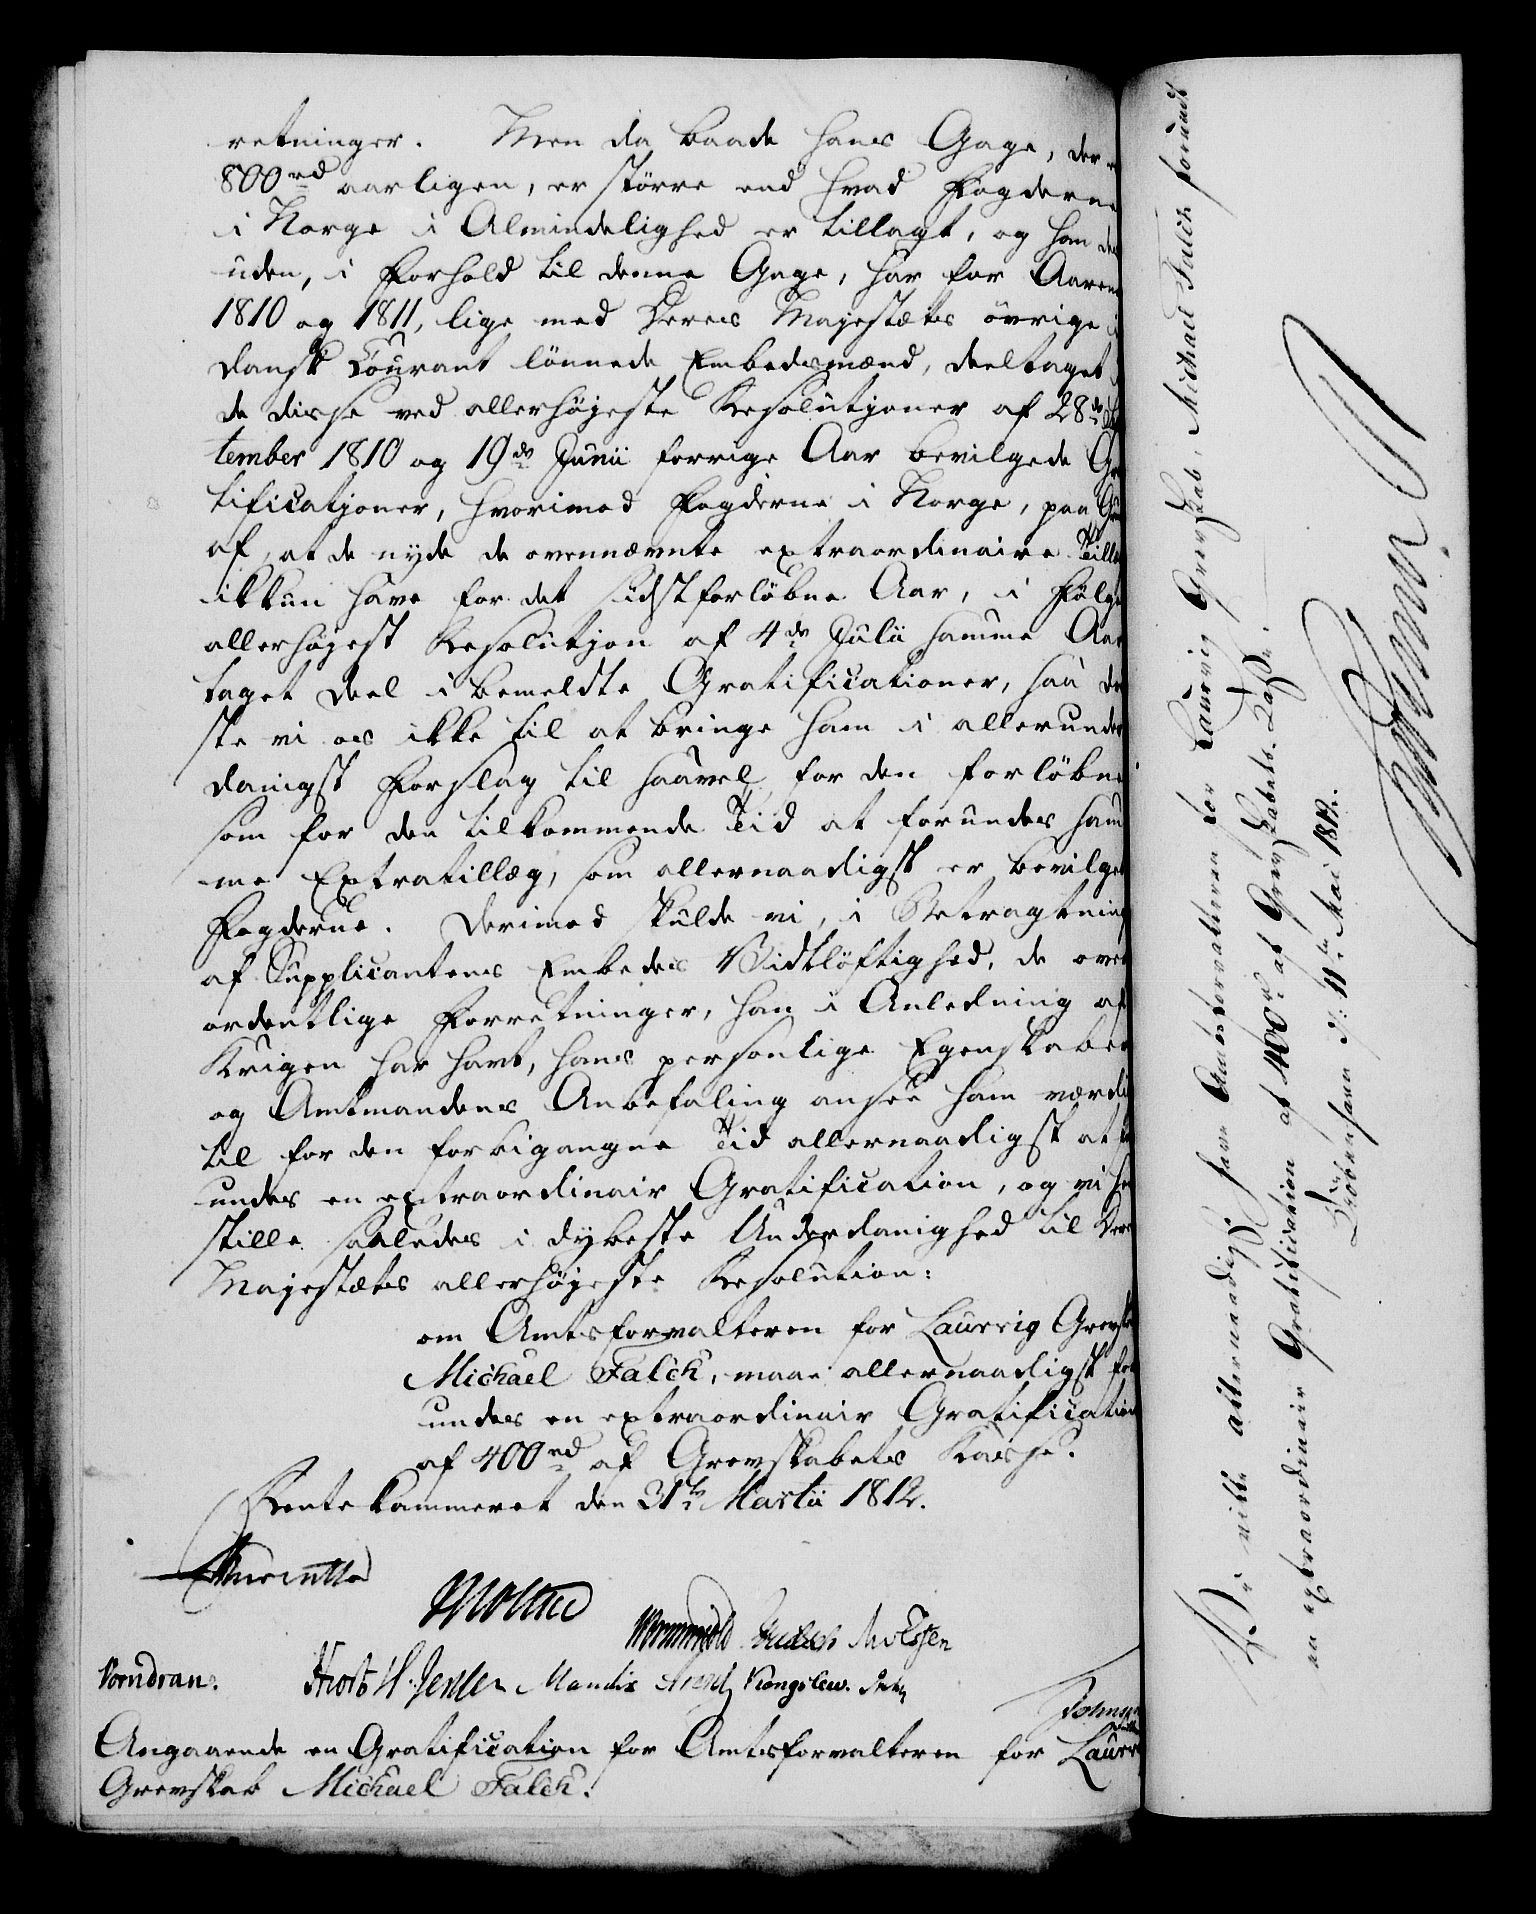 retninger. Men da baade hans Gage, der er
800 rd aarligen, er større end hvad Fogderne
i Norge i Almindelighed er tillagt, og han des
uden, i Forhold til denne Gage, har for Aarene
1810 og 1811, lige med Deres Majestæts øvrige i
dansk Courant lønnede Embedsmænd, deeltaget i
de disse ved allerhøjeste Resolutjoner af 28de Sep
tember 1810 og 19de Junii forrige Aar bevilgede Gra
tificatjoner, hvorimod Fogderne i Norge, paa Grund
af, at de nyde de ovennævnte extraordinaire Tillæg
ikkun have for det sidstforløbne Aar, i Følge
allerhøjest Resolutjon af 4de Julii samme Aar
taget Deel i bemeldte Gratificationer, saa
ste vi os ikke til at bringe ham i allerunder
danigst Forslag til saavel for den forløbne
som for den tilkommende Tid at forundes sam
me Extratillæg, som allernaadigst er bevilget
Fogderne. Derimod skulde vi, i Betragtning
af Supplicantens Embedes Vidtløftighed, de over
ordentlige Forretninger, han i Anledning af
Krigen har havt, hans personlige Egenskaber
og Amtmandens Anbefaling ansee ham værdig
til for den forbigangne Tid allernaadigst at for
undes en extraordinair Gratification, og vi hen
stille saaledes i dybeste Underdanighed til Deres
Majestæts allerhøjeste Resolution:
om Amtsforvalteren for Laurvig Grevskab
Michael Falch, maae allernaadigst for
undes en extraordinair Gratification
af 400 rd af Grevskabets Kasse.
Rentekammeret den 31te Martii 1812.
Moltke
Wormskiold Knudsen
Vorndran. Hiort H. Jensen Mandix Kongslew.
Johnsen
Angaaende en Gratification for Amtsforvalteren for Laurvig
Grevskab Michael Falch.
Vi ville allernaadigst have Amtsforvalteren for Laurvig Grevskab, Michael Falch forundt
en extraordinair Gratification af 400 rd af Grevskabets Casse.
Kiøbenhavn d: 11te Mai 1812.
Frederik R